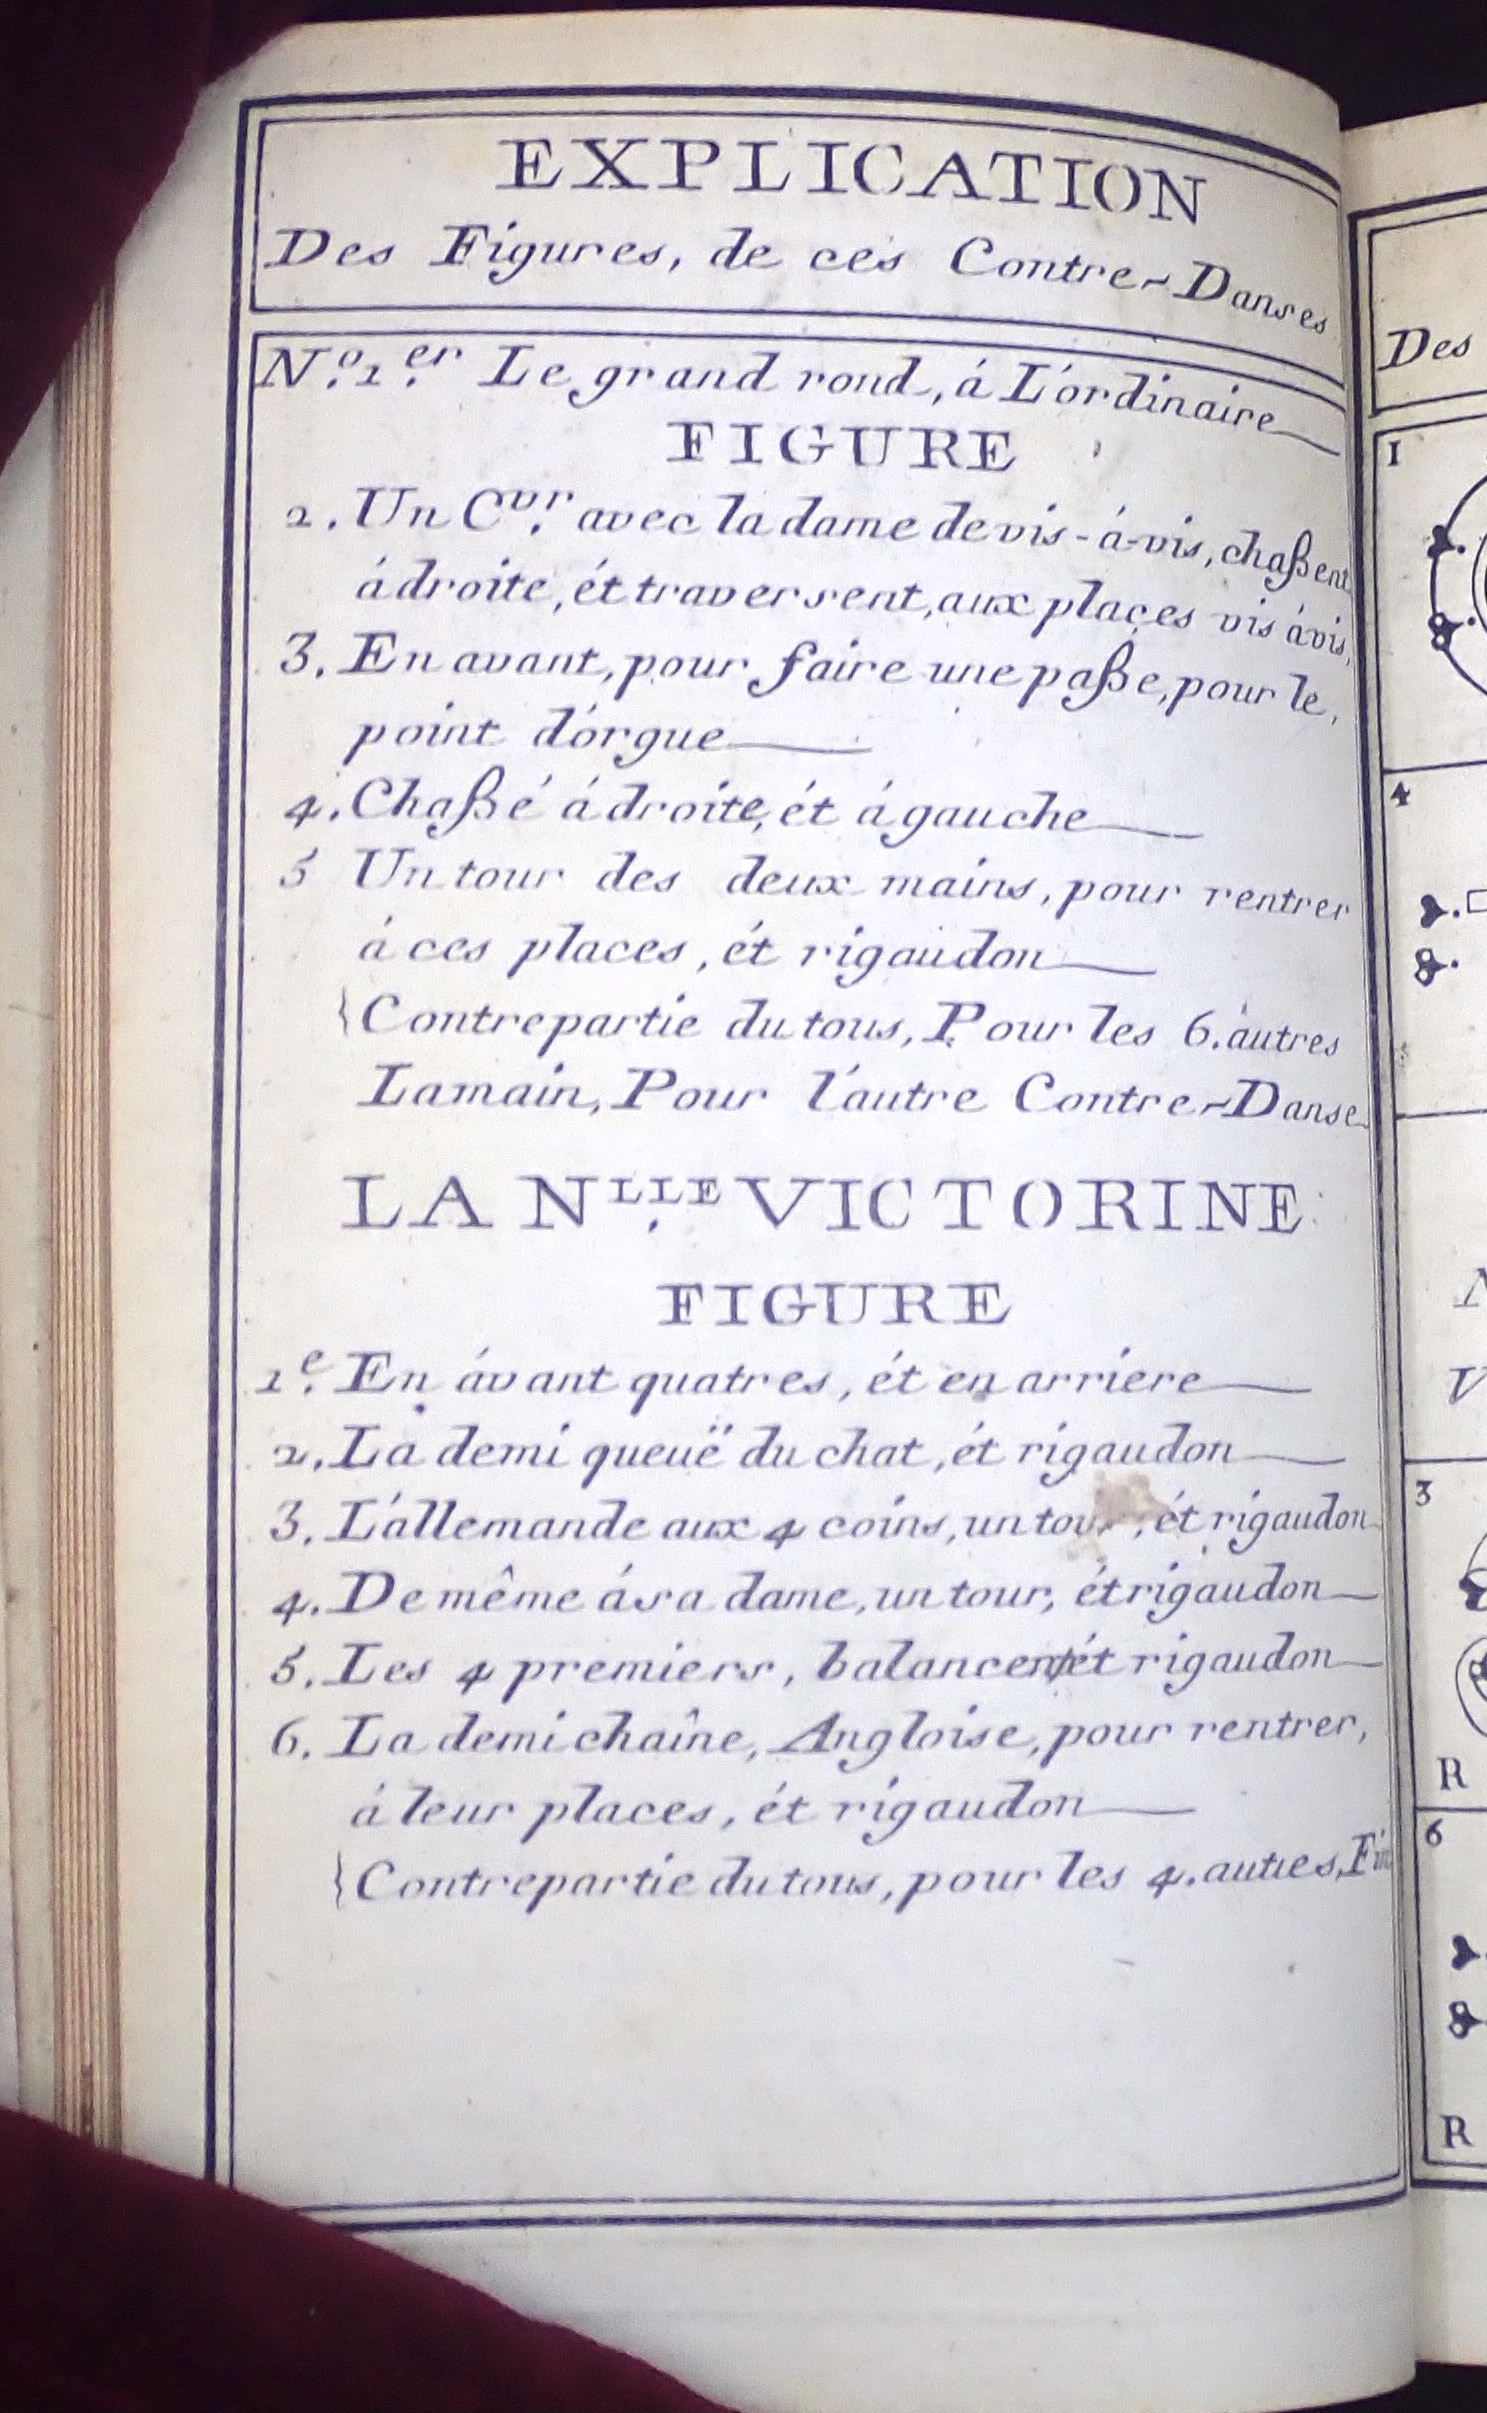 EXPLICATION
Des Figures, de ces Contre-Danses
N.º 1.er Le grand rond, á L'órdinaire
FIGURE
2. Un C.vr avec la dame de vis-á-vis, chaßent
á droite, ét traversent, aux places vis ávis,
3. En avant, pour faire une paße, pour le,
point d'órgue
4. Chaßé á droite, ét á gauche
5 Un tour des deux mains, pour rentrer
á ces places, ét rigaudon
{Contrepartie du tous, Pour les 6. autres
La main, Pour l'autre Contre-Danse
LA N.LLE VICTORINE
FIGURE
1.e En ávant quatres, ét en arriere
2. La demi queuë du chat, ét rigaudon
3. L'állemande aux 4 coins, un tour, ét rigaudon
4. De même ása dame, un tour, ét rigaudon
5. Les 4 premiers, balancent ét rigaudon
6. La demi chaîne, Angloise, pour rentrer,
á leur places, ét rigaudon
{Contrepartie du tous, pour les 4. autres, Fin
Des
1
4
3
R
6
R